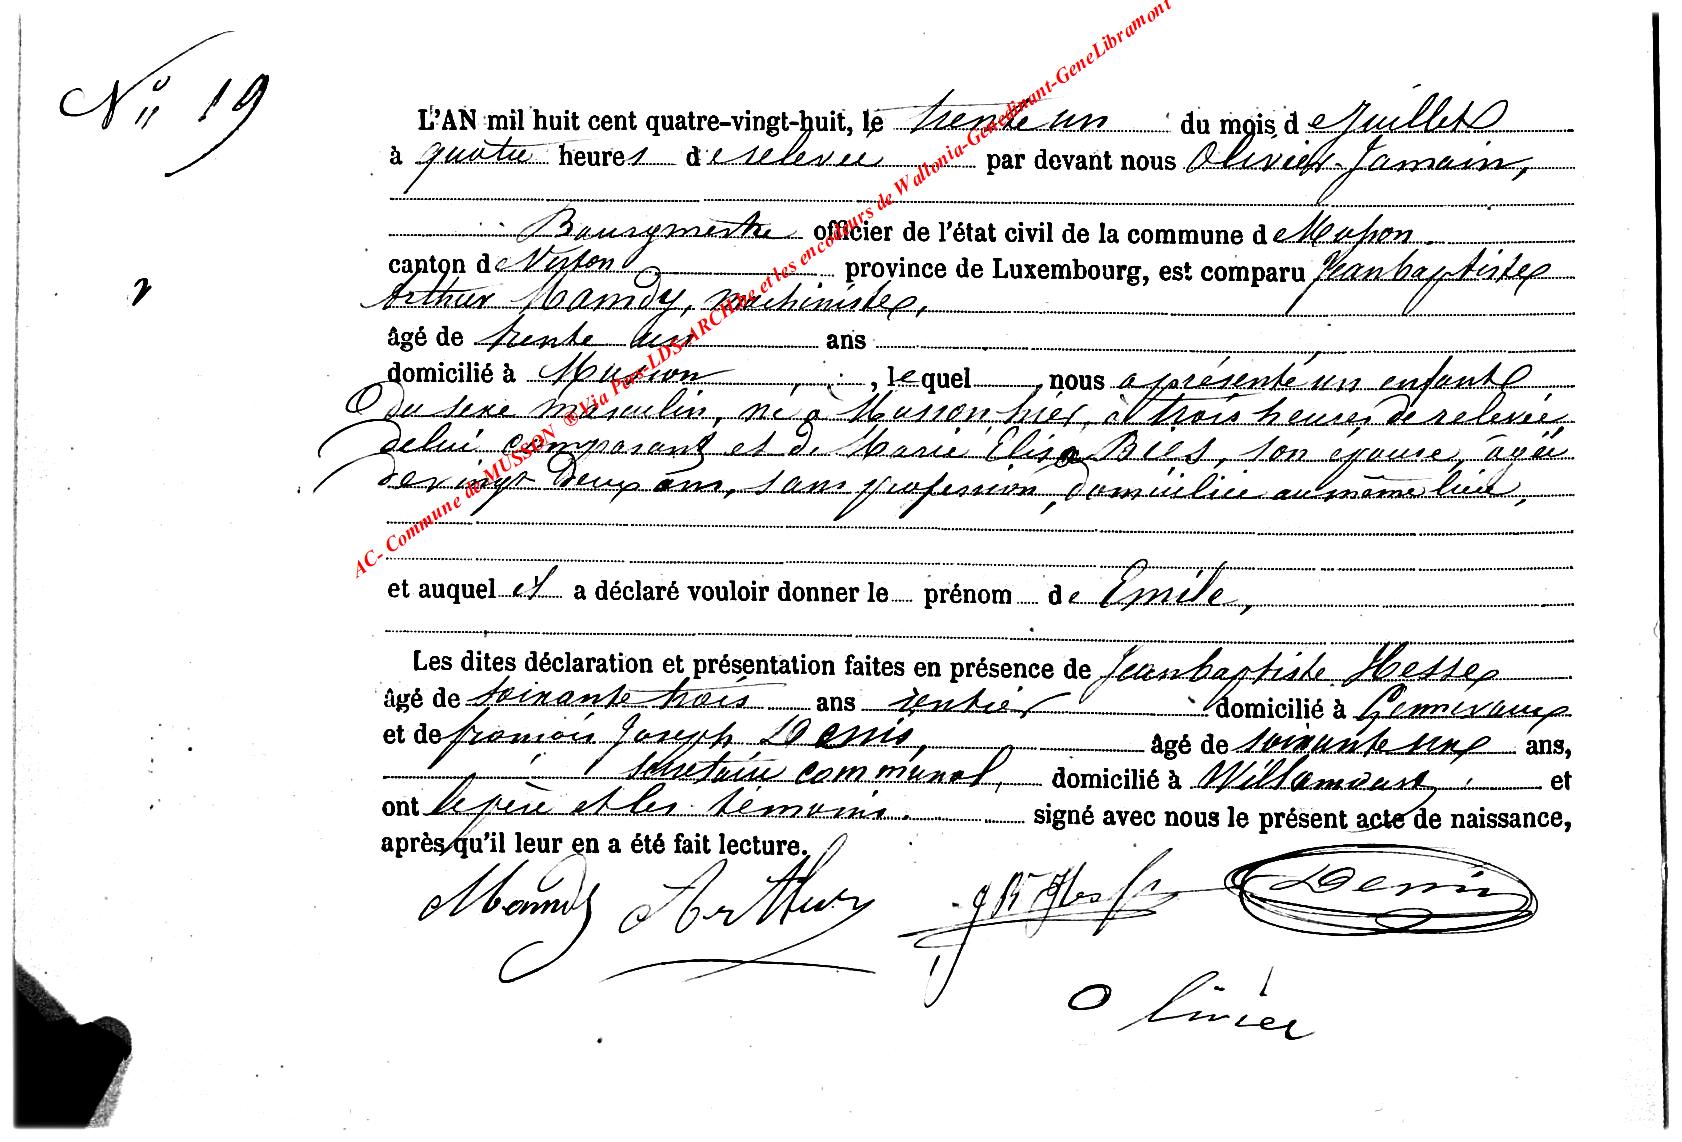 N° 19
L'AN mil huit cent quatre-vingt-huit, le trente un du mois de Juillet
à quatre heures de relevée par devant nous Olivier Jamain,
Bourgmestre officier de l'état civil de la commune de Musson
canton de Virton province de Luxembourg, est comparu Jeanbaptiste
Arthur Mamdy, machiniste,
âgé de trente un ans
domicilié à Musson, lequel nous a présenté un enfant
du sexe masculin, né à Musson hier, à trois heures de relevée
de lui comparant et de Marie Elisa Bils, son épouse, âgée
de vingt deux ans, sans profession, domiciliée au même lieu,
et auquel il a déclaré vouloir donner le prénom de Emile,
Les dites déclaration et présentation faites en présence de Jeanbaptiste Hesse
âgé de soixante trois ans rentier domicilié à Gennevaux
et de françois Joseph Denis, âgé de soixante ans,
secrétaire communal, domicilié à Willancourt et
ont le père et les témoins. signé avec nous le présent acte de naissance,
après qu'il leur en a été fait lecture.
Mamdy Arthur J Bt Hesse Denis
Olivier
AC- Commune de MUSSON ®Via Pers-LDS-ARCH.be et les encodeurs de Wallonia-Genedinant-GeneLibramont